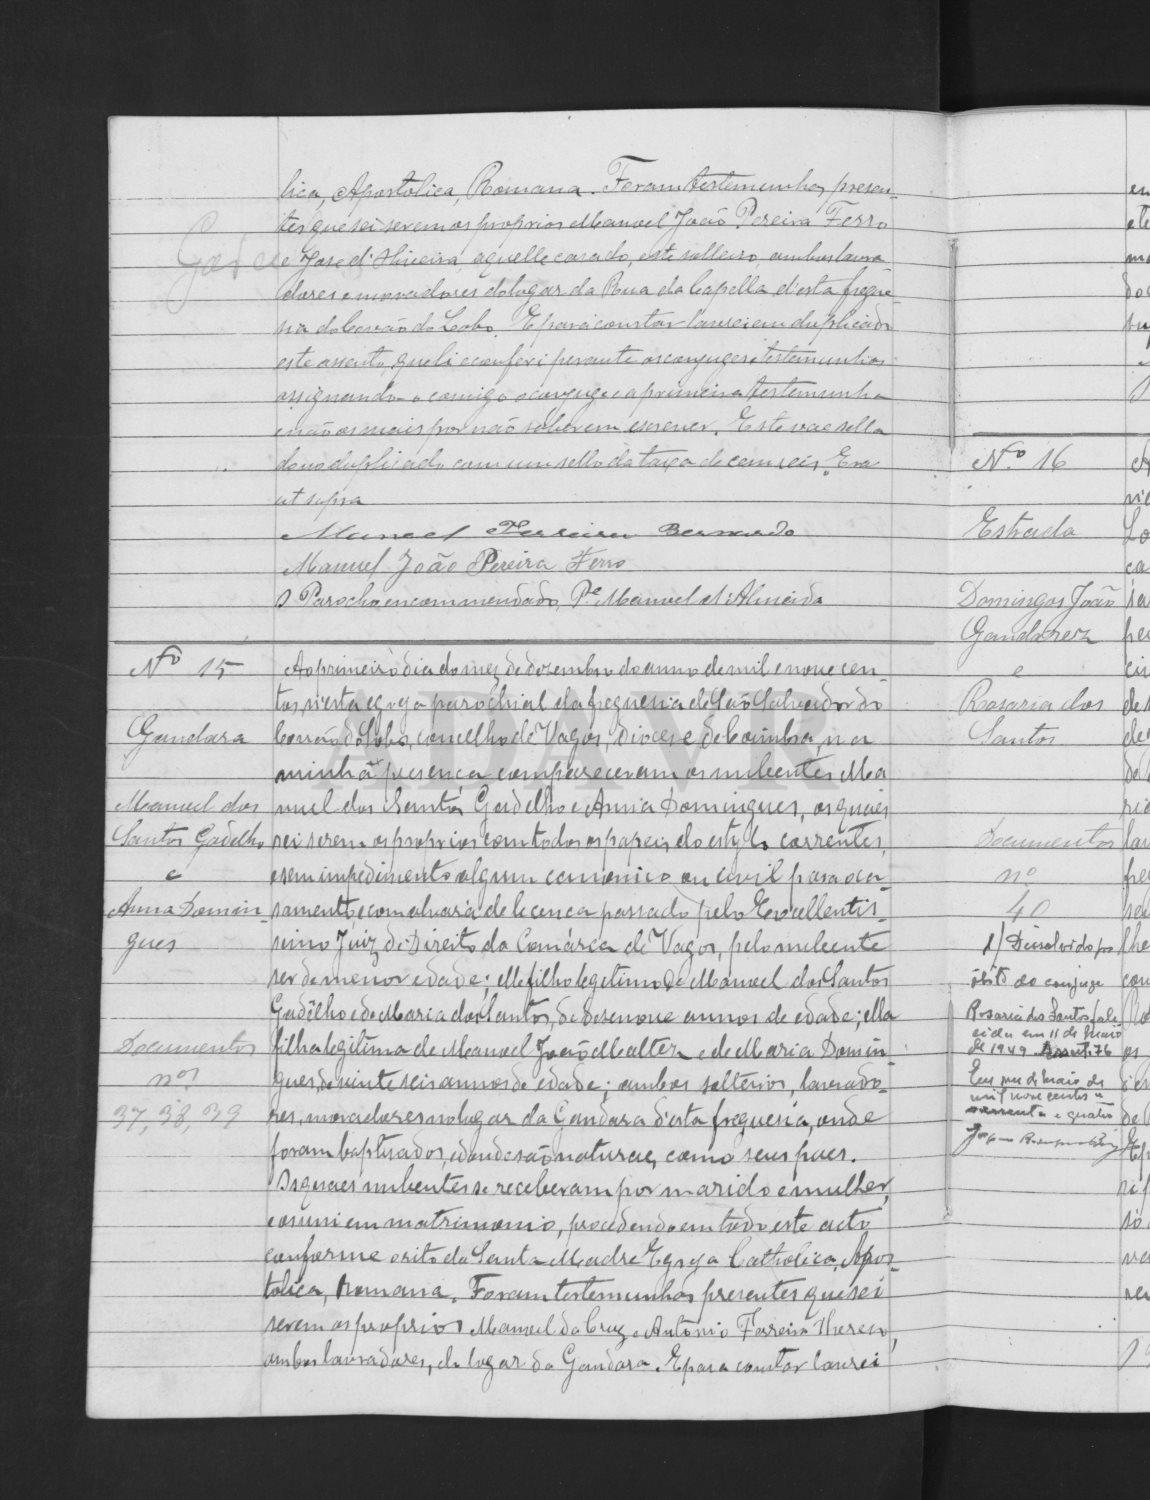 lica, Apostolica, Romana. Foram testemunhas presen-
tes que sei serem os proprios Manoel João Pereira Ferro
e José d'Oliveira, aquelle casado, este solteiro, ambos lavra
dores e moradores do logar da Rua da Capella d'esta fregue-
sia do Covão do Lobo. E para constar lavrei em duplicado
este assento, que li e conferi perante os conjuges e testemunhas
assignando-o comigo o conjuge e a primeira testemunha
e não os mais por não saberem escrever. Este vae sella
do no duplicado com um sello da taxa de cem reis. Era
ut supra
Manoel Ferreira Bernardo
Manuel João Pereira Ferro
O Parocho encommendado, P.e Manuel d'Almeida
Nº 15
Gandara
Manuel dos
Santos Gadelho
e
Anna Domin-
gues
Documentos
nos
37, 38, 39
Ao primeiro dia do mez de dezembro do anno de mil e nove cen-
tos, n'esta egreja parochial da freguesia de São Salvador do
Covão do Lobo, concelho de Vagos, Diocese de Coimbra, na
minha presença compareceram os nubentes Ma
nuel dos Santos Gadelho e Anna Domingues, os quaes
sei serem os proprios com todos os papeis do estylo correntes,
e sem impedimento algum canonico ou civil para o ca-
samento, e com alvará de licença passado pelo Excellentis-
simo Juiz de Direito da Comárca de Vagos, pelo nubente
ser de menor edade; elle filho legitimo de Manoel dos Santos
Gadêlho e de Maria dos Santos, de desenove annos de edade; ella
filha legitima de Manoel João Malter e de Maria Domin
gues, de vinte seis annos de edade; ambos solteiros, lavrado-
res, moradores no logar da Gandara d'esta freguesia, onde
foram baptisados, e d'onde são naturaes, como seus paes.
Os quaes nubentes se receberam por marido e mulher,
e os uni em matrimonio, procedendo em todo este acto
conforme o rito da Santa Madre Egreja Catholica, Apos-
tolica, Romana. Foram testemunhas presentes que sei
serem os proprios Manoel da Cruz e Antonio Ferreira
ambos lavradores, do logar da Gandara. E para constar lavrei
N.º 16
Estrada
Domingos João
Gandarez
e
Rosaria dos
Santos
Documentos
nº
40
1/ Dissolvido por
óbito do conjuge
Rosaria dos Santos, fale
cida em 11 de maio
de 1949. Assent. 76